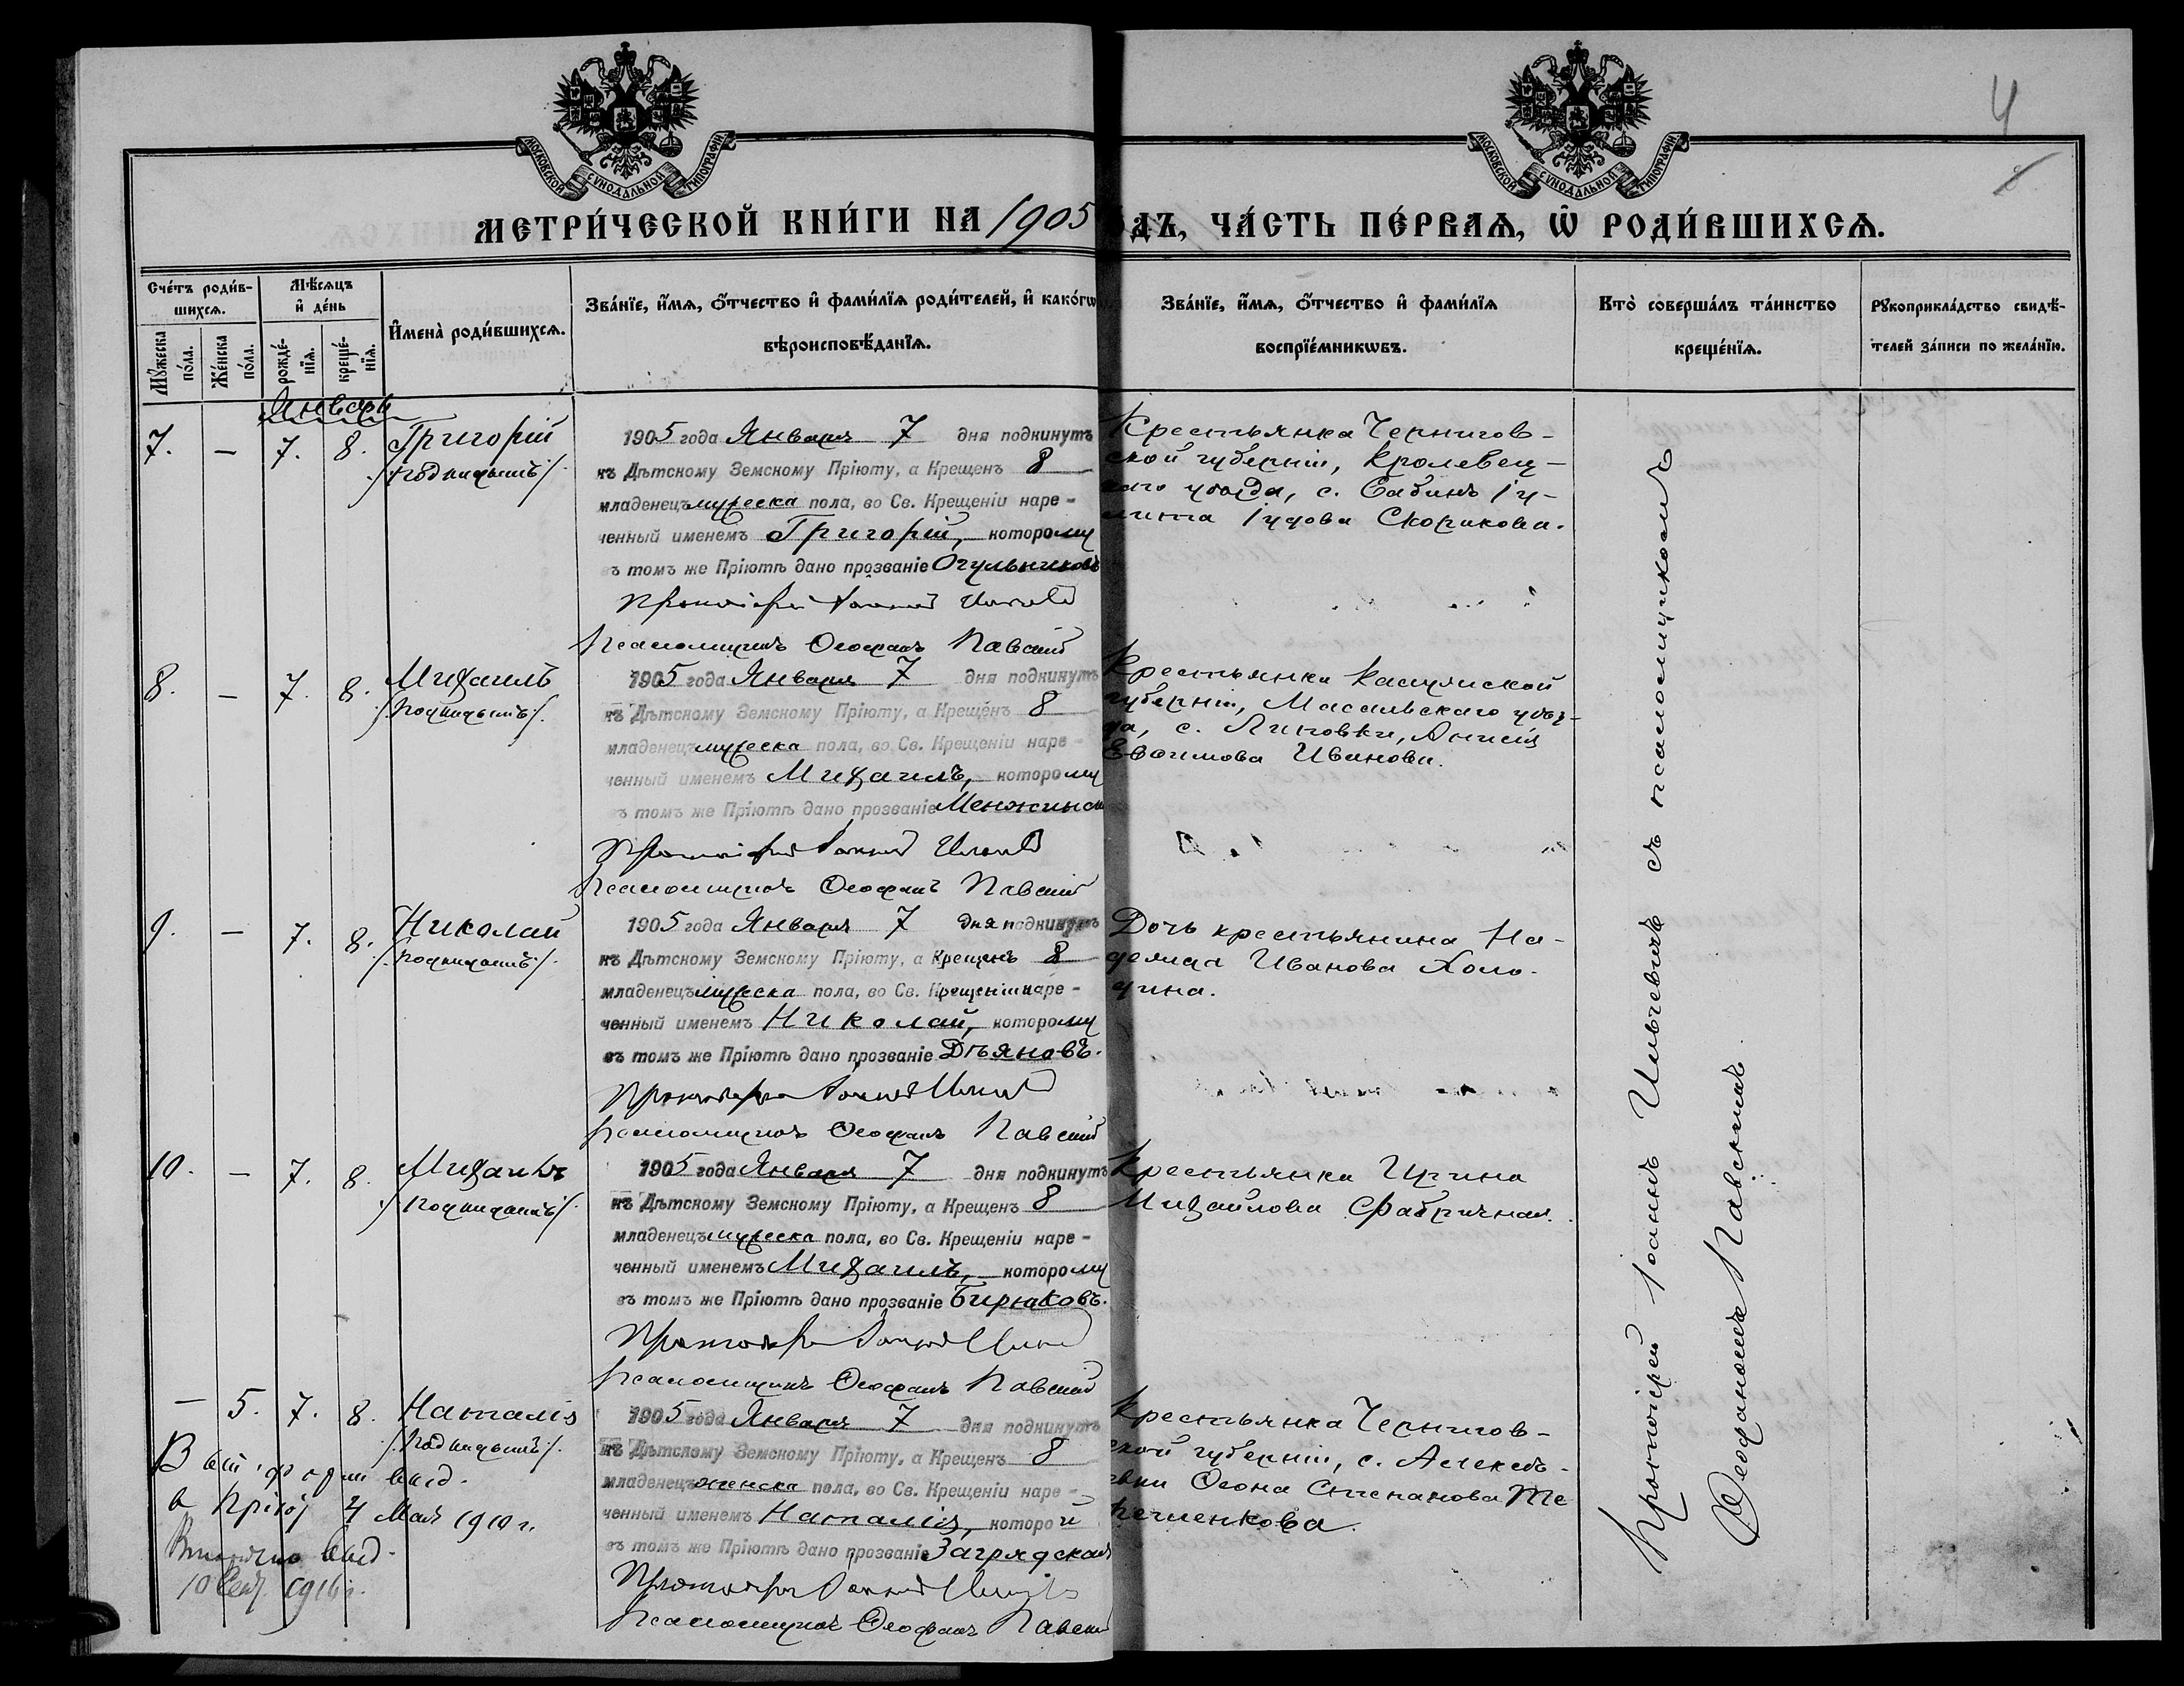 МОСКОВСКОЙ СѴНОДАЛЬНОЙ ТИПОГРАФІИ
МОСКОВСКОЙ СѴНОДАЛЬНОЙ ТИПОГРАФІИ
4
МЕТРИ́ЧЕСКОЙ КНИ́ГИ НА 1905
ОДЪ, ЧА́СТЬ ПЕ́РВАѦ, Ѡ҆ РОДИ́ВШИХСѦ.
Сче́тъ роди́в-
шихсѧ.
Мꙋ́жеска по́ла.
Же́нска по́ла.
Мѣ́сѧцъ
и҆ де́нь
рожде́-нїѧ.
креще́-нїѧ.
И҆мена̀ роди́вшихсѧ.
Зва́нїе, и҆́мѧ, ѻ҆́тчество и҆ фами́лїѧ роди́телей, и҆ како́гѡ
вѣроисповѣ́данїѧ.
Зва́нїе, и҆́мѧ, ѻ҆́тчество и҆ фами́лїѧ
воспрїе́мникѡвъ.
Кто̀ соверша́лъ та́инство
креще́нїѧ.
Рꙋкоприкла́дство свидѣ́-
телей за́писи по жела́нїю.
Январь
7. — 7. 8. Григорій
/:подкидышъ:/
1905 года Января 7 дня подкинутъ
къ Дѣтскому Земскому Пріюту, а Крещенъ 8
младенецъ мужеска пола, во Св. Крещеніи наре-
ченный именемъ Григорій, которому
въ томъ же Пріютѣ дано прозваніе Огульниковъ
Протоіерей Іоаннъ
Псаломщикъ Ѳеофанъ Павскій
Крестьянка Чернигов-
ской губерніи, Кролевец-
каго уѣзда, с.
Іудова Скорикова.
8. — 7. 8. Михаилъ
/:подкидышъ:/
1905 года Января 7 дня подкинутъ
къ Дѣтскому Земскому Пріюту, а Крещенъ 8
младенецъ мужеска пола, во Св. Крещеніи наре-
ченный именемъ Михаилъ, которому
въ томъ же Пріютѣ дано прозваніе Менжинск
Протоіерей Іоаннъ
Псаломщикъ Ѳеофанъ Павскій
Крестьянка Калужской
губерніи, Масальскаго уѣз-
да, с. Липовки, Анисія
Евѳимова Иванова.
9. — 7. 8. Николай
/:подкидышъ:/
1905 года Января 7 дня подкинутъ
къ Дѣтскому Земскому Пріюту, а Крещенъ 8
младенецъ мужеска пола, во Св. Крещеніи наре-
ченный именемъ Николай, которому
въ томъ же Пріютѣ дано прозваніе Дѣяновъ.
Протоіерей Іоаннъ
Псаломщикъ Ѳеофанъ Павскій
Дочь крестьянина На-
дежда Иванова Холо-
дина.
10. — 7. 8. Михаилъ
/:подкидышъ:/
1905 года Января 7 дня подкинутъ
къ Дѣтскому Земскому Пріюту, а Крещенъ 8
младенецъ мужеска пола, во Св. Крещеніи наре-
ченный именемъ Михаилъ, которому
въ томъ же Пріютѣ дано прозваніе Бирюковъ.
Протоіерей Іоаннъ
Псаломщикъ Ѳеофанъ Павскій
Крестьянка Ирина
Михайлова Фабричная.
— 5. 7. 8. Наталія
/:подкидышъ:/
выд.
в Пріют 4 Мая 1910 г.
Вторично выд.
10 Сент. 1916 г.
1905 года Января 7 дня подкинутъ
къ Дѣтскому Земскому Пріюту, а Крещенъ 8
младенецъ женска пола, во Св. Крещеніи наре-
ченный именемъ Наталія, которой
въ томъ же Пріютѣ дано прозваніе Загрядская
Протоіерей Іоаннъ
Псаломщикъ Ѳеофанъ Павскій
Крестьянка Чернигов-
ской губерніи, с. Алексѣ-
евки Степанова Те
Протоіерей Іоаннъ Ильичевичъ съ псаломщикомъ
Ѳеофаномъ Павскимъ.